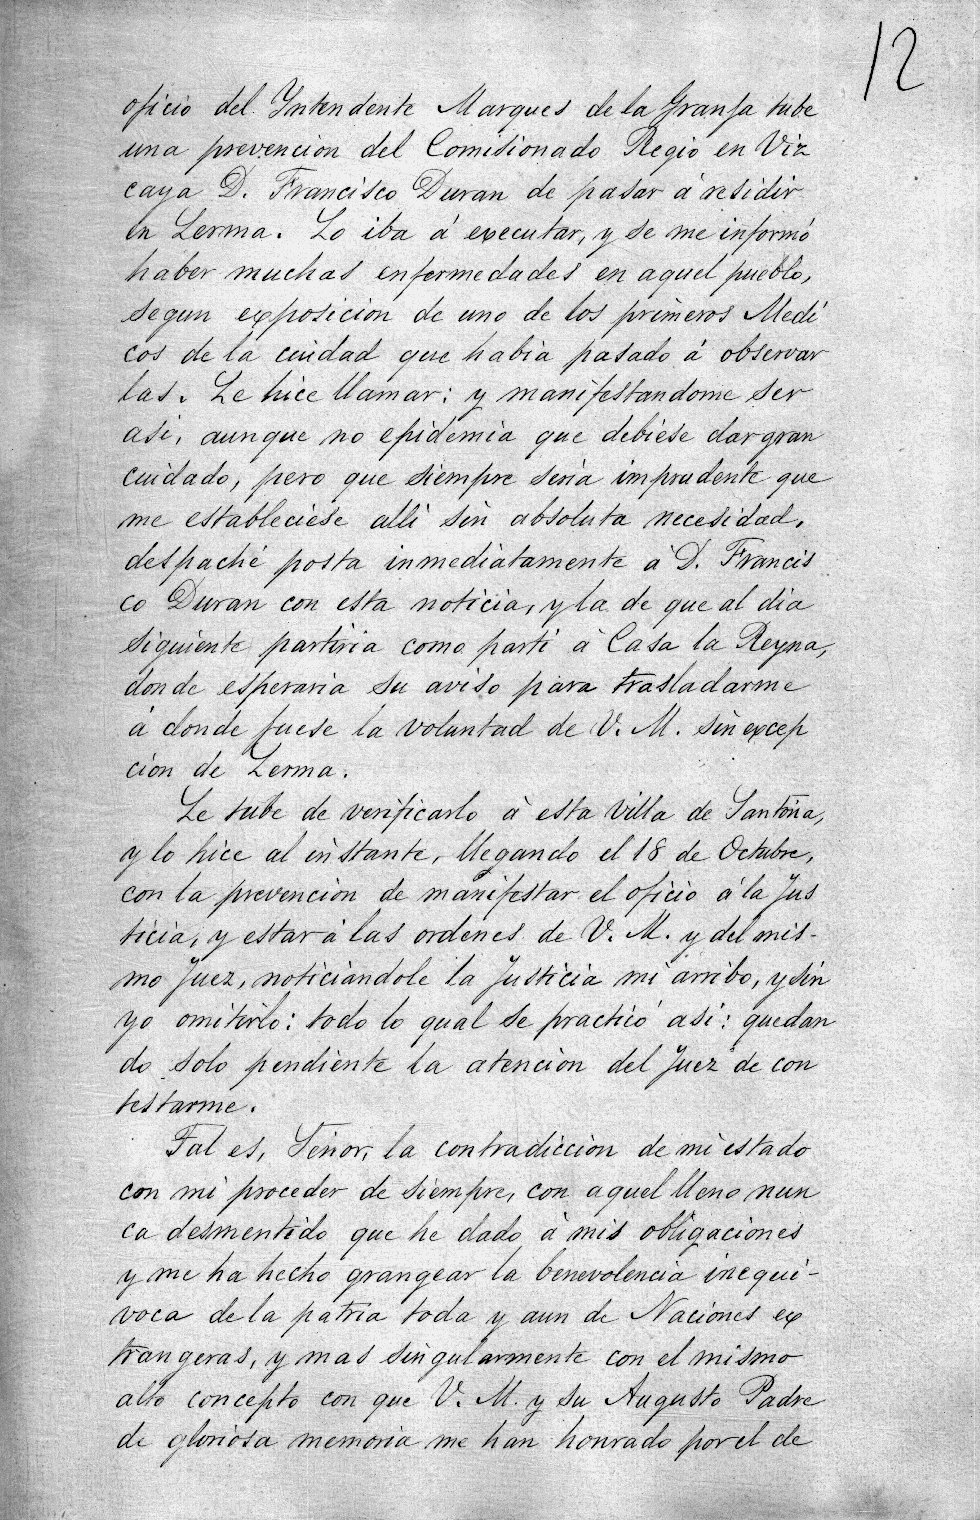 12
oficio del Yntendente Marques de la Granja tube
una prevencion del Comisionado Regio en Viz
caya D. Francisco Duran de pasar á residir
en Lerma. Lo iba á executar, y se me informó
haber muchas enfermedades en aquel pueblo,
segun exposicion de uno de los primeros Medi
cos de la ciudad que habia pasado á observar
las. Le hice llamar; y manifestandome ser
asi, aunque no epidemia que debiese dar gran
cuidado, pero que siempre seria imprudente que
me estableciese alli sin absoluta necesidad,
despaché posta inmediatamente á D. Francis
co Duran con esta noticia, y la de que al dia
siguiente partiria como parti á Casa la Reyna,
donde esperaria su aviso para trasladarme
á donde fuese la voluntad de V. M. sin excep
cion de Lerma.
Le tube de verificarlo á esta Villa de Santoña,
y lo hice al instante, llegando el 18 de Octubre,
con la prevencion de manifestar el oficio á la Jus
ticia, y estar á las ordenes de V. M. y del mis-
mo Juez, noticiandole la Justicia mi arribo, y sin
yo omitirlo: todo lo qual se practicó asi: quedan
do solo pendiente la atencion del Juez de con
testarme.
Tal es, Señor, la contradiccion de mi estado
con mi proceder de siempre, con aquel lleno nun
ca desmentido que he dado á mis obligaciones
y me ha hecho grangear la benevolencia inequi-
voca de la patria toda y aun de Naciones ex
trangeras, y mas singularmente con el mismo
alto concepto con que V. M. y su Augusto Padre
de gloriosa memoria me han honrado por el de